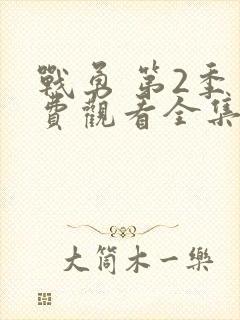 戰勇 第2季
費觀看全集
大筒木一樂